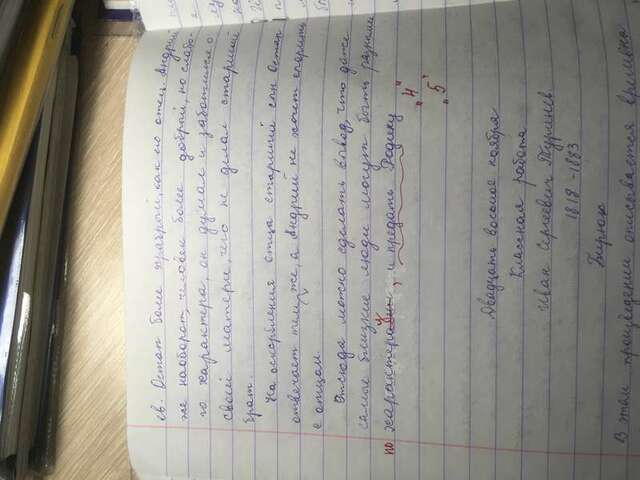 ев. Остап более храбрый, как его отец. Андрий
же наоборот, человек более добрый, но слабо-
го характера, он думал и заботился о
своей матери, чего не делал старший
брат.
На оскорбления отца старший сын Остап
отвечает тем же, а Андрий не хочет спорить
с отцом.
Отсюда можно сделать вывод, что даже
самые близкие люди могут быть разными
по характеру, и предать Родину
"4"
"5"
Двадцать восьмое ноября
Классная работа
Иван Сергеевич Тургенев
1818-1883
Бирюк
В этом произведении описывается времена